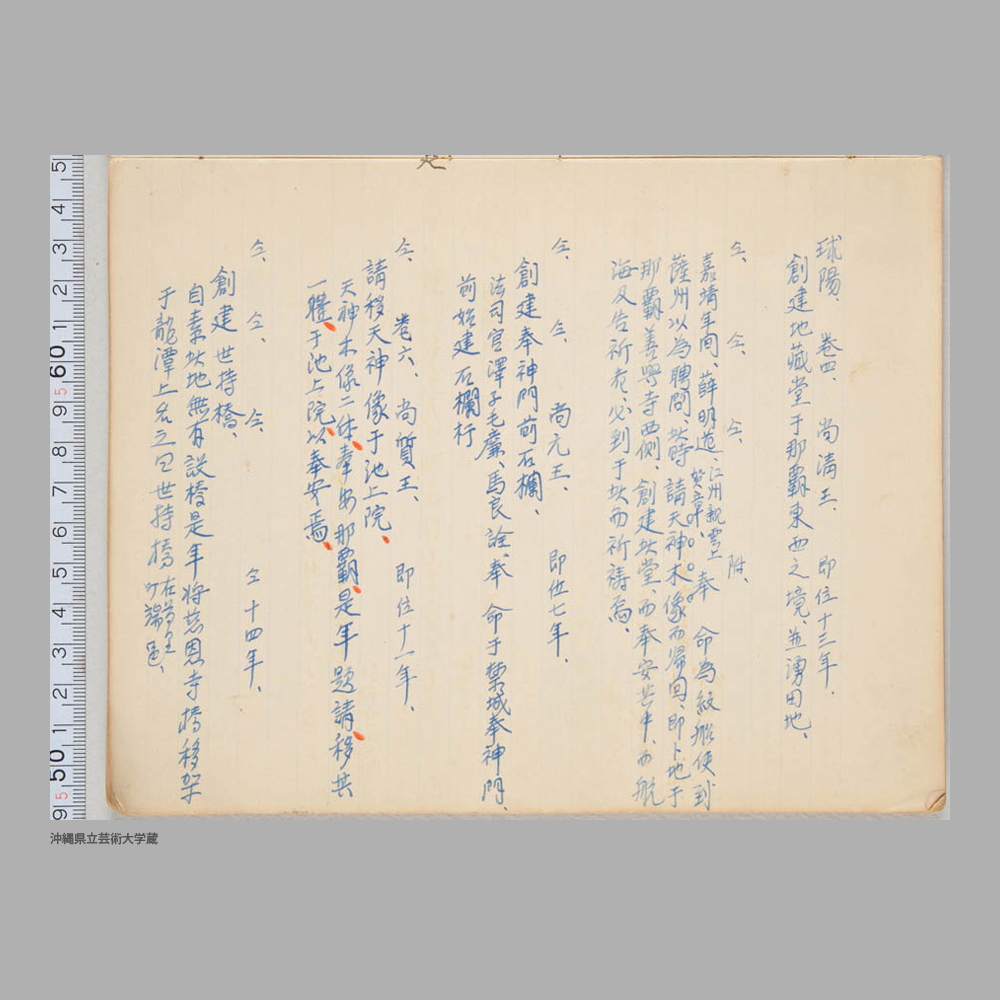 球陽、 巻四、 尚清王、 即位十三年、
創建地蔵堂于那覇東西之境、並湧田地、
仝、 仝、 仝、 附、
嘉靖年间、薛明道、江州親雲上賀章、奉 命為紋船使到
薩州以為聘問、此時請天神木像而帰国、即卜地于
那覇善興寺西側、創建此堂、而奉安其中、而航
海及告祈者、必到于此而祈祷焉、
仝、 仝、 尚元王、 即位七年、
創建奉神門前石欄、
法司官澤子毛廉、馬良詮、奉 命于禁城奉神門、
前始建石欄杆
仝、 巻六、 尚質王、 即位十一年、
請移天神像于池上院、
天神木像二体、奉安那覇、是年題請、移其
一體、于池上院、以奉安焉、
仝、 仝、 仝、 仝十四年、
創建世持橋、
自素此地無有設橋是年将慈恩寺橋移架
于龍潭上名之曰世持橋在
5 4 3 2 1 60 9 8 7 6 5 4 3 2 1 50 9
沖縄県立芸術大学蔵